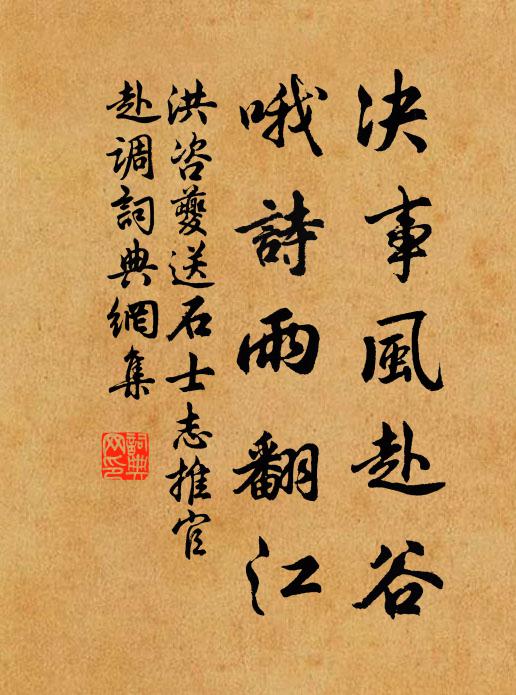 决事風赴谷
哦詩雨翻江
洪咨夔送石士志推官
赴調詞典網集
詞典网印